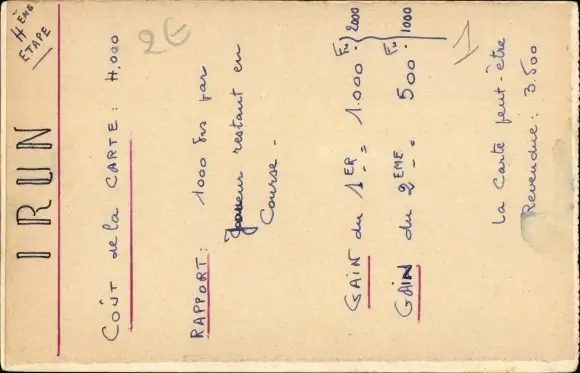 4ÈME
ETAPE
IRUN
COÛT de la CARTE: 4.000
2€
RAPPORT: 1000 Frs par
Joueur restant en
Course -
GAIN du 1ER = 1.000 Fr. 2000
GAIN du 2EME = 500 Fr. 1000
1
La Carte peut-être
Revendue: 3.500